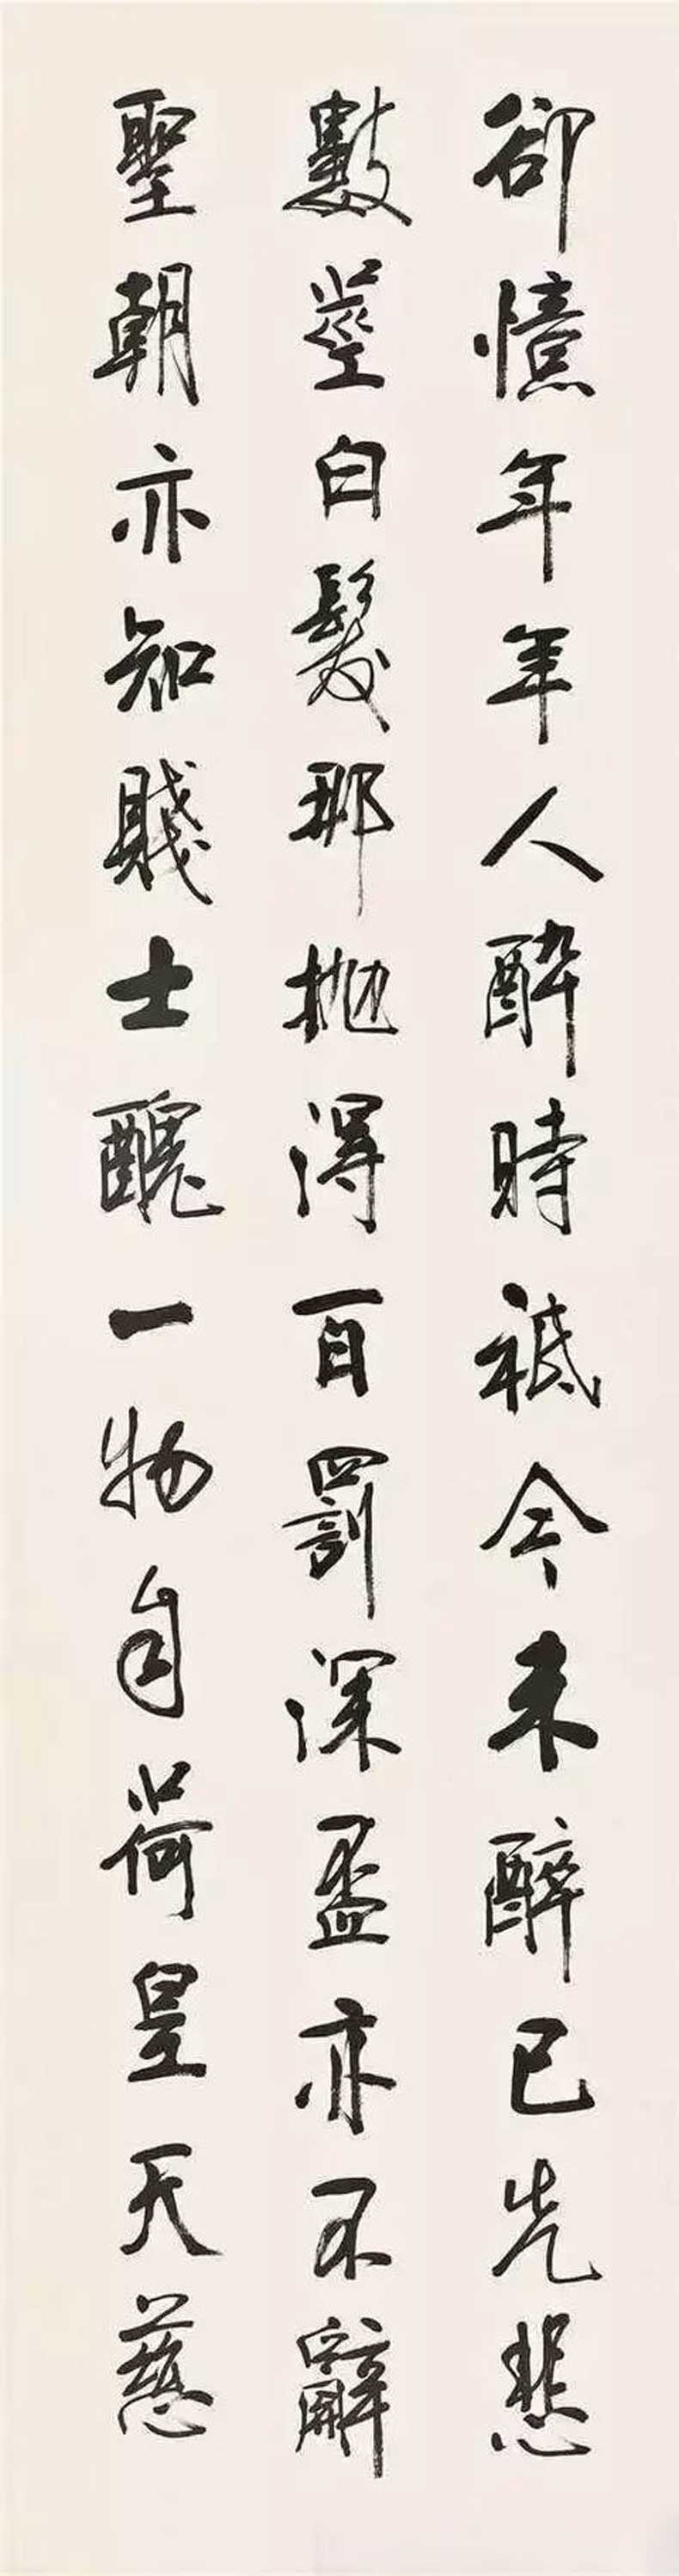 卻憶年年人醉時祗今未醉已先悲
數莖白髮那拋得百罰深盃亦不辭
聖朝亦知賤士醜一物自荷皇天慈